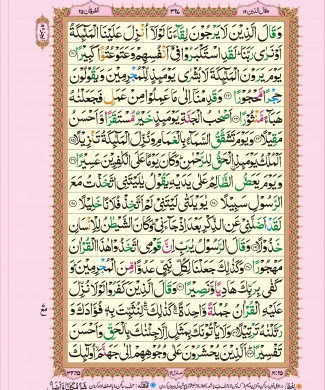 وقال الذين ١٩
الفرقان ٢٥
وَقَالَ الَّذِيْنَ لَا يَرْجُوْنَ لِقَآءَنَا لَوْلَآ اُنْزِلَ عَلَيْنَا الْمَلٰٓئِكَةُ
اَوْ نَرٰى رَبَّنَا ؕ لَقَدِ اسْتَكْبَرُوْا فِيْٓ اَنْفُسِهِمْ وَعَتَوْ عُتُوًّا كَبِيْرًا
يَوْمَ يَرَوْنَ الْمَلٰٓئِكَةَ لَا بُشْرٰى يَوْمَئِذٍ لِّلْمُجْرِمِيْنَ وَيَقُوْلُوْنَ
حِجْرًا مَّحْجُوْرًا وَقَدِمْنَآ اِلٰى مَا عَمِلُوْا مِنْ عَمَلٍ فَجَعَلْنٰهُ
هَبَآءً مَّنْثُوْرًا اَصْحٰبُ الْجَنَّةِ يَوْمَئِذٍ خَيْرٌ مُّسْتَقَرًّا وَّاَحْسَنُ
مَقِيْلًا وَيَوْمَ تَشَقَّقُ السَّمَآءُ بِالْغَمَامِ وَنُزِّلَ الْمَلٰٓئِكَةُ تَنْزِيْلًا
اَلْمُلْكُ يَوْمَئِذِ ۨالْحَقُّ لِلرَّحْمٰنِ ؕ وَكَانَ يَوْمًا عَلَى الْكٰفِرِيْنَ عَسِيْرًا
وَيَوْمَ يَعَضُّ الظَّالِمُ عَلٰى يَدَيْهِ يَقُوْلُ يٰلَيْتَنِى اتَّخَذْتُ مَعَ
الرَّسُوْلِ سَبِيْلًا يٰوَيْلَتٰى لَيْتَنِيْ لَمْ اَتَّخِذْ فُلَانًا خَلِيْلًا
لَقَدْ اَضَلَّنِيْ عَنِ الذِّكْرِ بَعْدَ اِذْ جَآءَنِيْ ؕ وَكَانَ الشَّيْطٰنُ لِلْاِنْسَانِ
خَذُوْلًا وَقَالَ الرَّسُوْلُ يٰرَبِّ اِنَّ قَوْمِى اتَّخَذُوْا هٰذَا الْقُرْاٰنَ
مَهْجُوْرًا وَكَذٰلِكَ جَعَلْنَا لِكُلِّ نَبِيٍّ عَدُوًّا مِّنَ الْمُجْرِمِيْنَ ؕ وَ
كَفٰى بِرَبِّكَ هَادِيًا وَّنَصِيْرًا وَقَالَ الَّذِيْنَ كَفَرُوْا لَوْلَا نُزِّلَ
عَلَيْهِ الْقُرْاٰنُ جُمْلَةً وَّاحِدَةً ۛ كَذٰلِكَ ۛ لِنُثَبِّتَ بِهٖ فُؤَادَكَ وَ
رَتَّلْنٰهُ تَرْتِيْلًا وَلَا يَاْتُوْنَكَ بِمَثَلٍ اِلَّا جِئْنٰكَ بِالْحَقِّ وَاَحْسَنَ
تَفْسِيْرًا اَلَّذِيْنَ يُحْشَرُوْنَ عَلٰى وُجُوْهِهِمْ اِلٰى جَهَنَّمَ اُولٰٓئِكَ